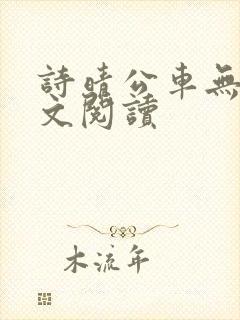 詩晴公車無
文閱讀
木流年